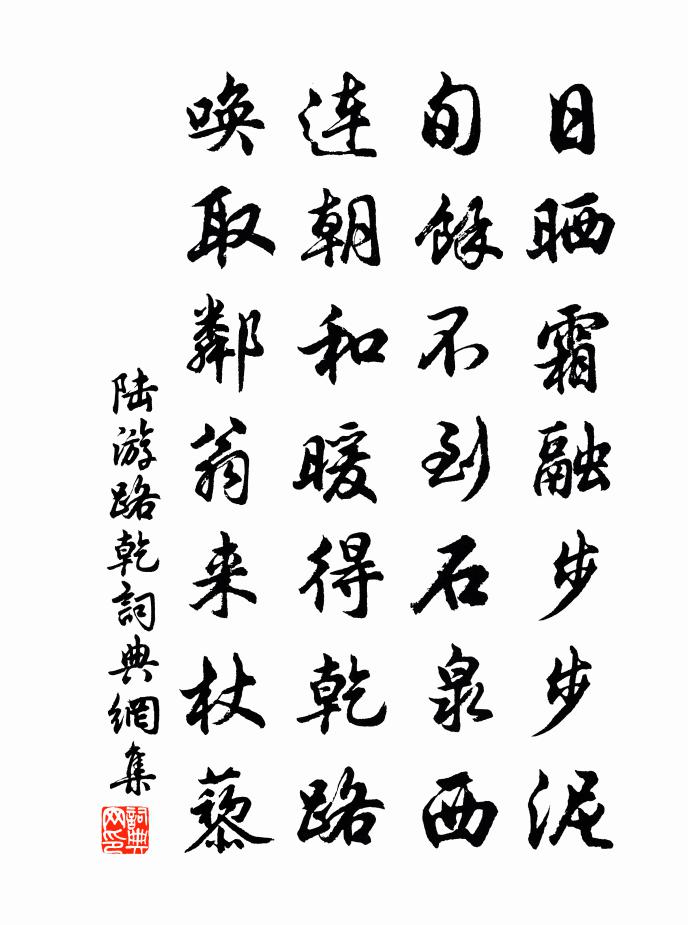 日晒霜融步步泥
旬餘不到石泉西
连朝和暖得乾路
唤取鄰翁来杖藜
陆游路乾詞典網集
詞典
网印